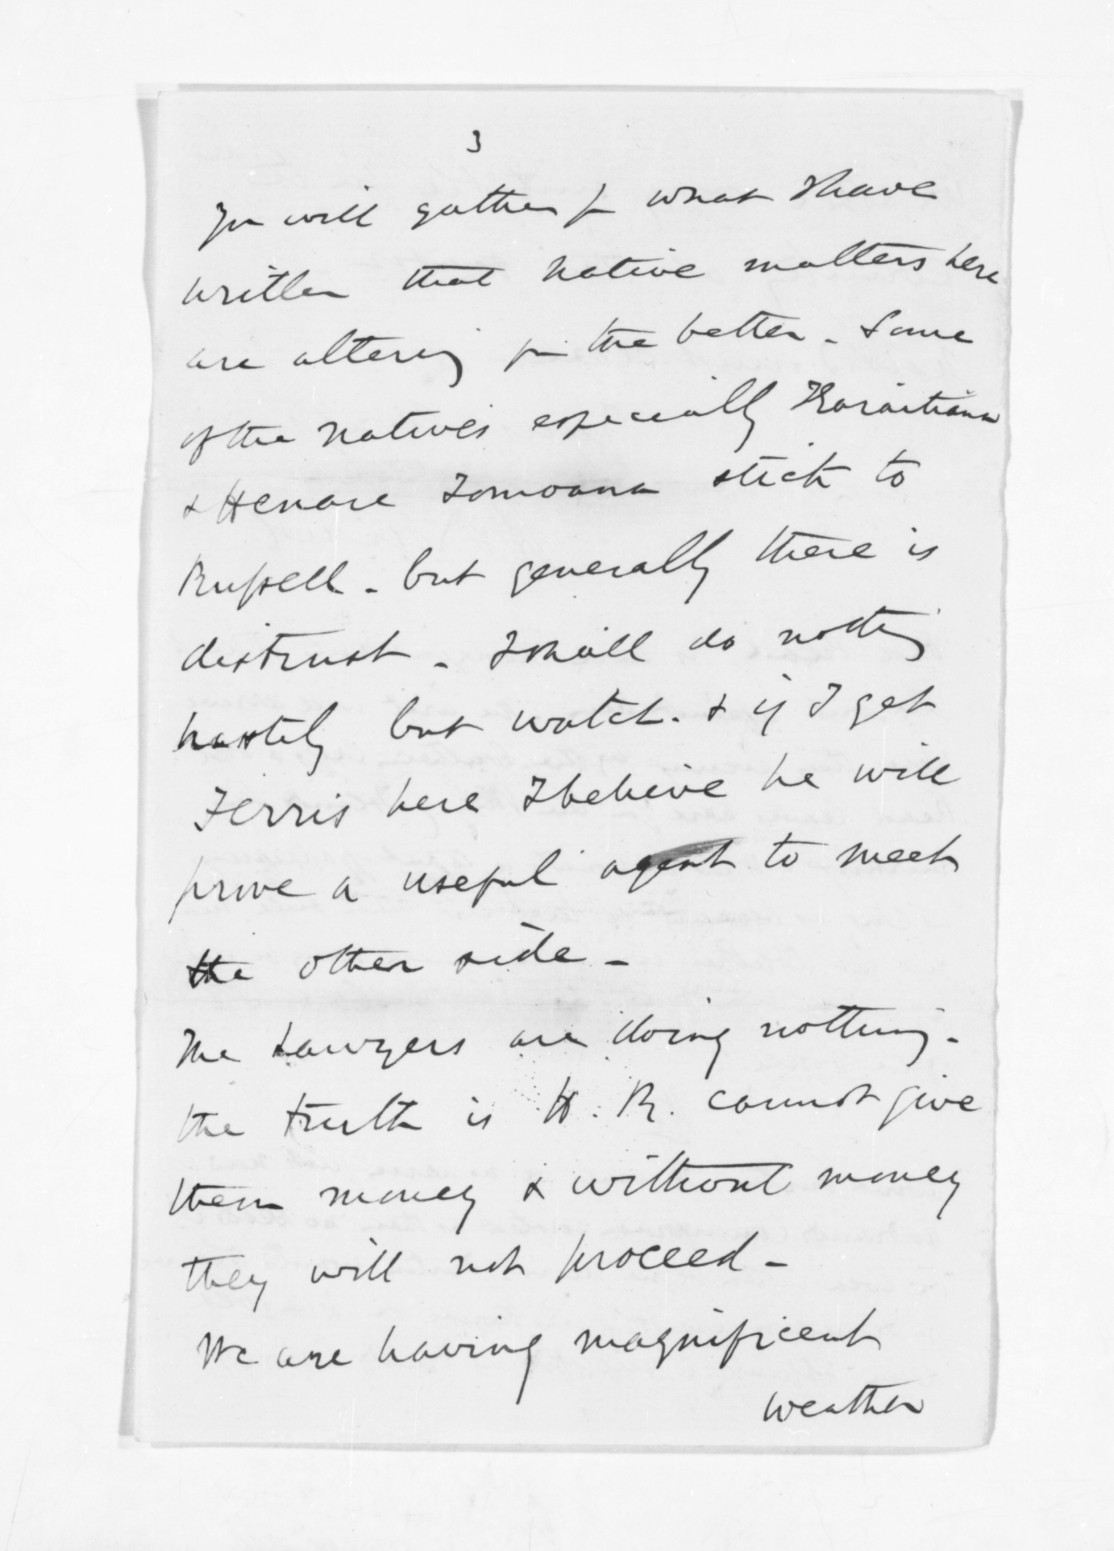 3
You will gather fr what I have
written that native matters here
are altering for the better. Some
of the natives especially Karaitiana
& Henare Tomoana stick to
Russell - but generally there is
distrust - I shall do nothing
hastily but watch. & if I get
Ferris here I believe he will
prove a useful agent to meet
the other side -
The Lawyers are doing nothing -
the truth is H. R. cannot give
them money & without money
they will not proceed -
We are having magnificent
weather